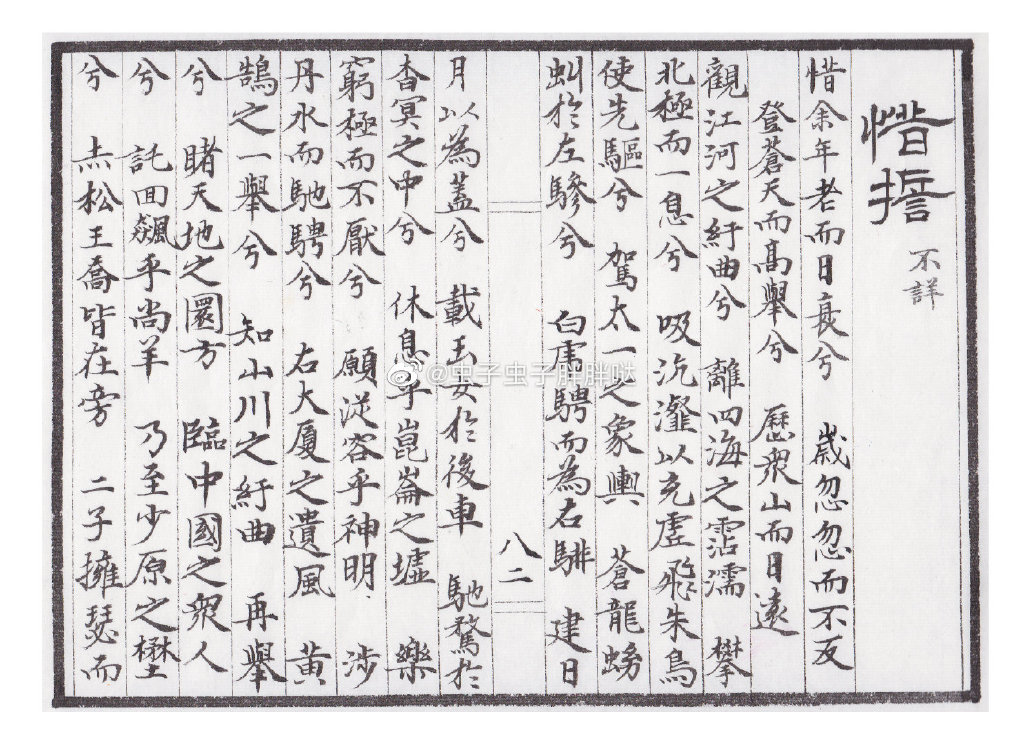 惜誓
不詳
惜余年老而日衰兮 歲忽忽而不反
登蒼天而高舉兮 歷衆山而日遠
觀江河之紆曲兮 離四海之霑濡 攀
北極而一息兮 吸沆瀣以充虛飛朱鳥
使先驅兮 駕太一之象輿 蒼龍蚴
虯於左驂兮 白虎騁而為右騑 建日
八二
月以為蓋兮 載玉女於後車 馳騖於
杳冥之中兮 休息乎崑崙之墟 樂
窮極而不厭兮 願從容乎神明 涉
丹水而馳騁兮 右大廈之遺風 黄
鵠之一舉兮 知山川之紆曲 再舉
兮 睹天地之圜方 臨中國之衆人
兮 託回飆乎尚羊 乃至少原之壄
兮 赤松王喬皆在旁 二子擁瑟而
@虫子虫子胖胖哒